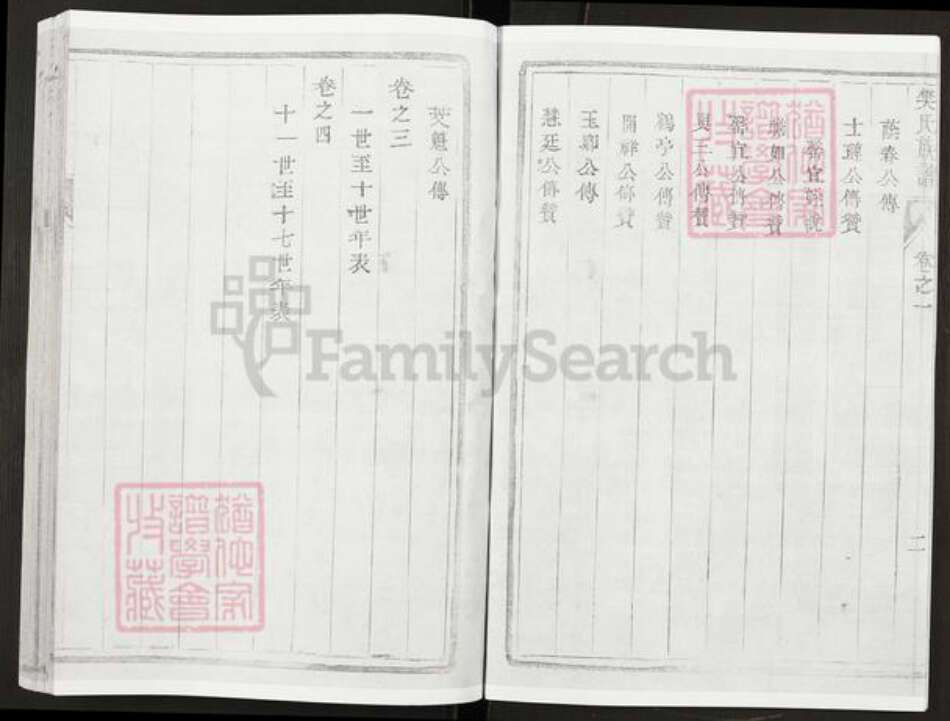 樊氏族譜
卷之一
二
蔭春公傳
士璋公傳贊
公傳贊
宜公傳贊
三公傳贊
鶴亭公傳贊
開祥公傳贊
玉卿公傳
慧廷公傳贊
英魁公傳
卷之三
一世至十世年表
卷之四
十一世至十七世年表
FamilySearch
譜學會
收藏